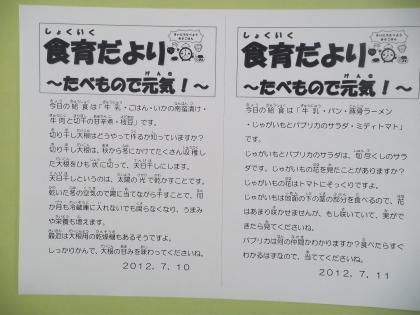 しょくいく
食育だより
～たべもので元気！～
今日の給食は「牛乳・ごはん・いかの南蛮漬け・
牛肉と切干の甘辛煮・枝豆」です。
切り干し大根はどうやって作るか知っていますか？
切り干し大根は、秋から冬にかけてたくさん収穫し
た大根をひも状に切って、天日干しにします。
天日干しというのは、太陽の光で乾かすことです。
乾いた冬の空気の間に当てながら干すことで、何
か月も冷蔵庫に入れないでも腐らなくなり、うまみ
や栄養も増えます。
最近は大根用の乾燥機もあるそうですよ。
しっかりかんで、大根の甘みを味わってくださいね。
2012.7.10
しょくいく
食育だより
～たべもので元気！～
今日の給食は「牛乳・パン・豚骨ラーメン
・じゃがいもとパプリカのサラダ・ミディトマト」
です。
じゃがいもとパプリカのサラダは、旬尽くしのサラ
ダです。じゃがいもの花を見たことがありますか？
じゃがいもの花はトマトにそっくりですよ。
じゃがいもは地面の下の茎の部分を食べるので、花
はあまり咲かせませんが、もし咲いていて、実がで
きたら見てくださいね。
パプリカは何の仲間かわかりますか？食べたらすぐ
わかるはずなので、当ててくださいね。
2012.7.11